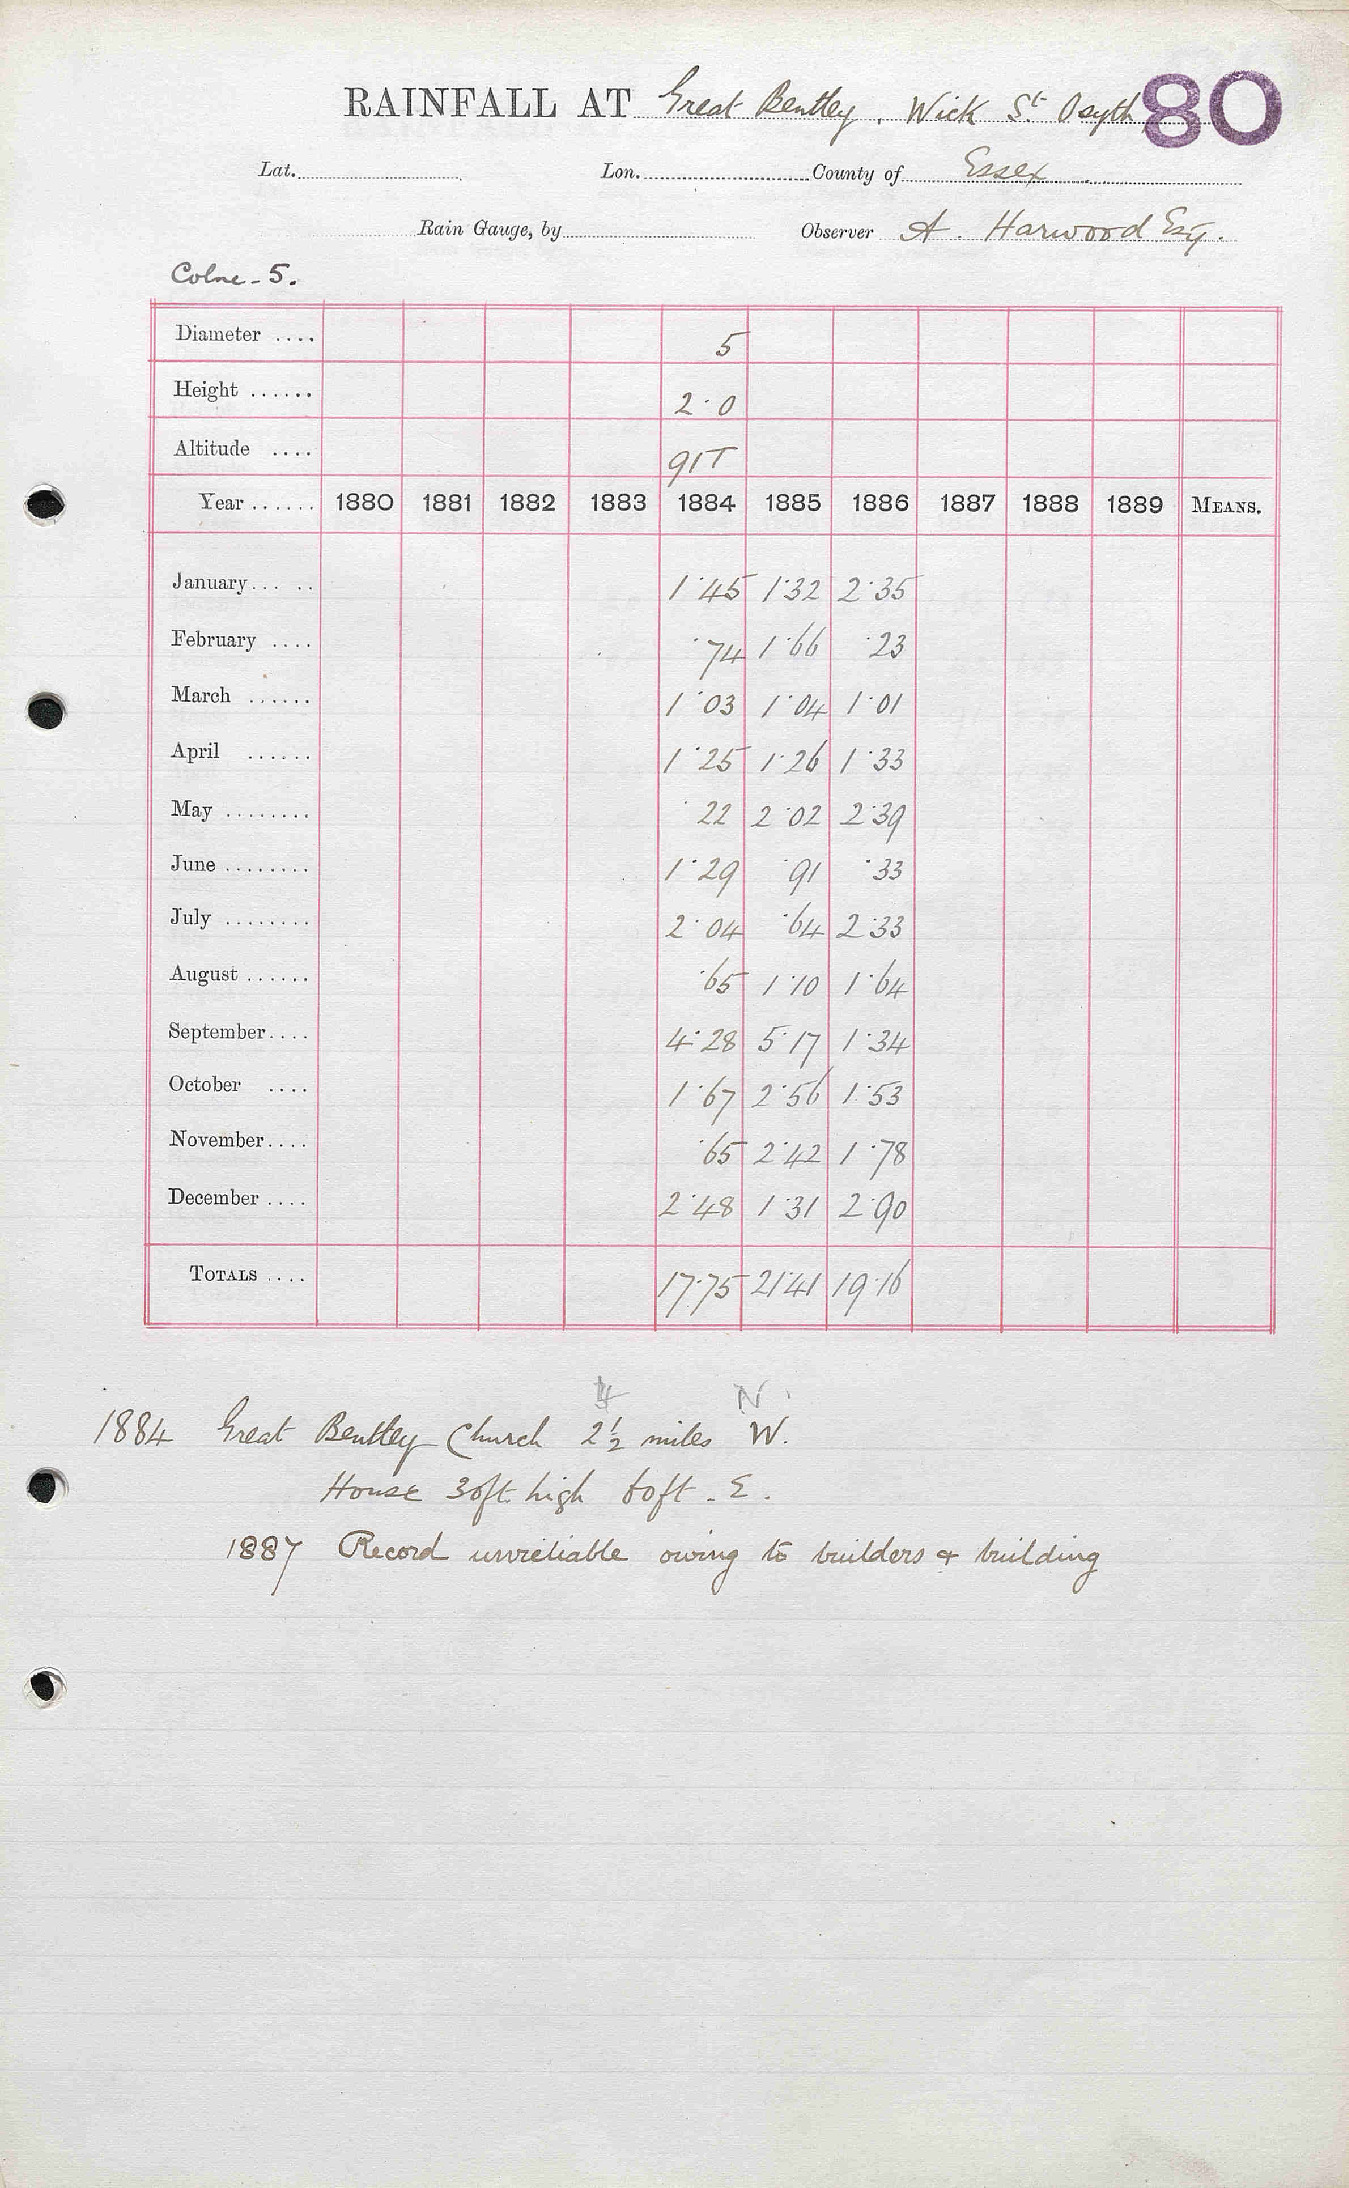 RAINFALL AT Great Bentley. Wick St Osyth 80
Lat. Lon. County of Essex
Rain Gauge, by Observer A. Harwood Esq.
Colne - 5.
Diameter .... 5
Height ...... 2·0
Altitude .... 91T
Year ...... 1880 1881 1882 1883 1884 1885 1886 1887 1888 1889 MEANS.
January... .. 1·45 1·32 2·35
February .... ·74 1·66 ·23
March ...... 1·03 1·04 1·01
April ...... 1·25 1·26 1·33
May ........ ·22 2·02 2·39
June ........ 1·29 ·91 ·33
July ........ 2·04 ·64 2·33
August ...... ·65 1·10 1·64
September.... 4·28 5·17 1·34
October .... 1·67 2·56 1·53
November.... ·65 2·42 1·78
December .... 2·48 1·31 2·90
TOTALS .... 17·75 21·41 19·16
4 N
1884 Great Bentley Church 2½ miles W.
House 30ft high 60ft. E.
1887 Record unreliable owing to builders & building